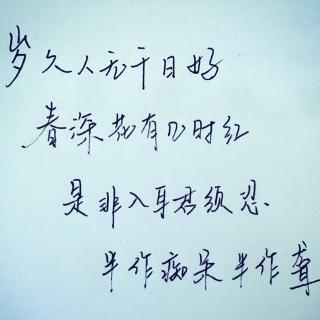 岁久人无千日好
春深花有几时红
是非入耳君须忍
半作痴呆半作聋